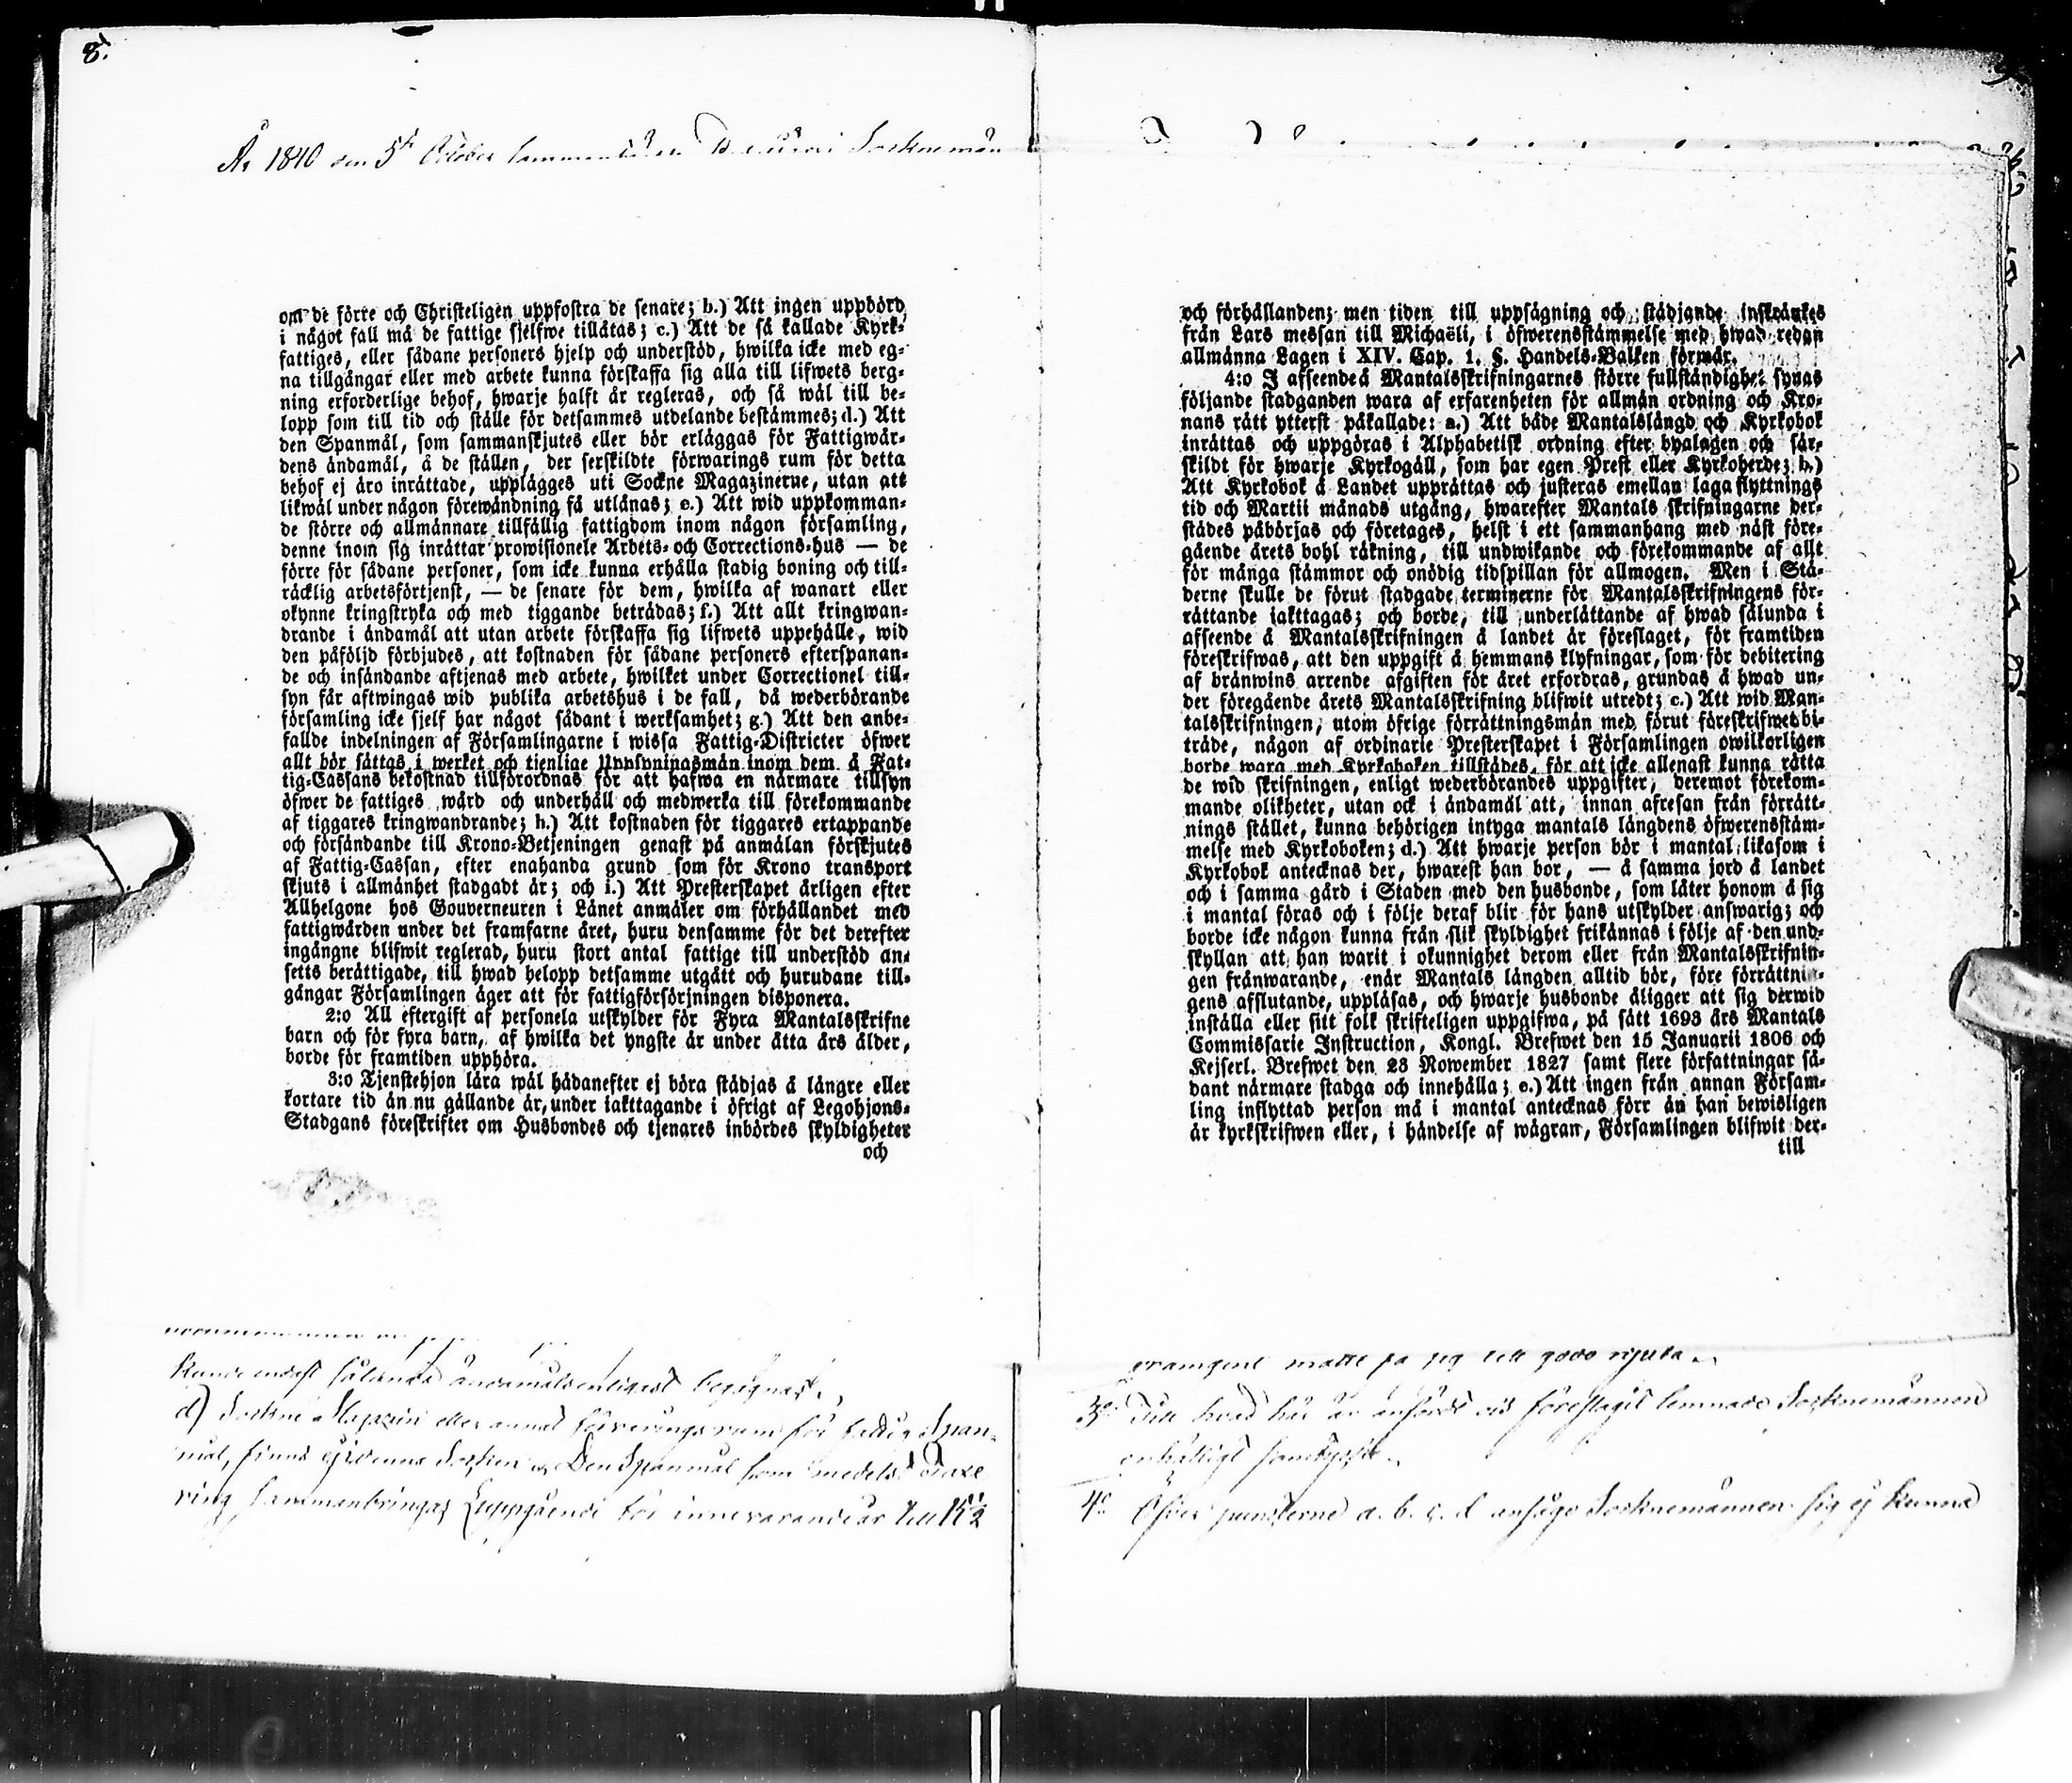 8.
År 1840 den 5te October Socknemän
om de förre och Christeligen uppfostra de senare; b.) Att ingen uppbörd
i något fall må de fattige sjelfwe tillåtas; c.) Att de så kallade Kyrk-
fattiges, eller sådane personers hjelp och understöd, hwilka icke med eg-
na tillgångar eller med arbete kunna förskaffa sig alla till lifwets berg-
ning erforderlige behof, hwarje halft år regleras, och så wäl till be-
lopp som till tid och ställe för detsammes utdelande bestämmes; d.) Att
den Spanmål, som sammanskjutes eller bör erläggas för Fattigwår-
dens ändamål, å de ställen, der serskildte förwarings rum för detta
behof ej äro inrättade, upplägges uti Sockne Magazinerne, utan att
likwäl under någon förewändning få utlånas; e.) Att wid uppkomman-
de större och allmännare tillfällig fattigdom inom någon församling,
denne inom sig inrättar prowisionele Arbets- och Corrections-hus — de
förre för sådane personer, som icke kunna erhålla stadig boning och till-
räcklig arbetsförtjenst, — de senare för dem, hwilka af wanart eller
okynne kringstryka och med tiggande beträdas; f.) Att allt kringwan-
drande i ändamål att utan arbete förskaffa sig lifwets uppehälle, wid
den påföljd förbjudes, att kostnaden för sådane personers efterspanan-
de och insändande aftjenas med arbete, hwilket under Correctionel till-
syn får aftwingas wid publika arbetshus i de fall, då wederbörande
församling icke sjelf har något sådant i werksamhet; g.) Att den anbe-
fallde indelningen af Församlingarne i wissa Fattig-Districter öfwer
allt bör sättas i werket och tjenlige Uppsyningsmän inom dem å Fat-
tig-Cassans bekostnad tillförordnas för att hafwa en närmare tillsyn
öfwer de fattiges wård och underhåll och medwerka till förekommande
af tiggares kringwandrande; h.) Att kostnaden för tiggares ertappande
och försändande till Krono-Betjeningen genast på anmälan förskjutes
af Fattig-Cassan, efter enahanda grund som för Krono transport
skjuts i allmänhet stadgadt är; och i.) Att Presterskapet årligen efter
Allhelgone hos Gouverneuren i Länet anmäler om förhållandet med
fattigwården under det framfarne året, huru densamme för det derefter
ingångne blifwit reglerad, huru stort antal fattige till understöd an-
setts berättigade, till hwad belopp detsamme utgått och hurudane till-
gångar Församlingen äger att för fattigförsörjningen disponera.
2:o All eftergift af personela utskylder för Fyra Mantalsskrifne
barn och för fyra barn, af hwilka det yngste är under åtta års ålder,
borde för framtiden upphöra.
3:o Tjenstehjon lära wäl hädanefter ej böra städjas å längre eller
kortare tid än nu gällande är, under iakttagande i öfrigt af Legohjons-
Stadgans föreskrifter om Husbondes och tjenares inbördes skyldigheter
och
kunde endast sålunda ändamålsenligast begagnas.
d) Sockne Magazin eller annat förvaringsrum för fattig Span-
mål, finns ej i denna Socken. Den Spanmål som medelst Taxe
ring sammanbringas uppgående för innevarande år till 15 1/2
och förhållanden; men tiden till uppsägning och städjande inskränkes
från Lars messan till Michaëli, i öfwerensstämmelse med hwad redan
allmänna Lagen i XIV. Cap. 1. §. Handels-Balken förmår.
4:o I afseende å Mantalsskrifningarnes större fullständighet synas
följande stadganden wara af erfarenheten för allmän ordning och Kro-
nans rätt ytterst påkallade: a.) Att både Mantalslängd och Kyrkobok
inrättas och uppgöras i Alphabetisk ordning efter byalagen och sär-
skildt för hwarje Kyrkogäll, som har egen Prest eller Kyrkoherde; b.)
Att Kyrkobok å Landet upprättas och justeras emellan laga flyttnings
tid och Martii månads utgång, hwarefter Mantals skrifningarne der-
städes påbörjas och företages, helst i ett sammanhang med näst före-
gående årets bohl räkning, till undwikande och förekommande af allt
för många stämmor och onödig tidspillan för allmogen. Men i Stä-
derne skulle de förut stadgade terminerne för Mantalsskrifningens för-
rättande iakttagas; och borde, till underlättande af hwad sålunda i
afseende å Mantalsskrifningen å landet är föreslaget, för framtiden
föreskrifwas, att den uppgift å hemmans klyfningar, som för debitering
af bränwins arrende afgiften för året erfordras, grundas å hwad un-
der föregående årets Mantalsskrifning blifwit utredt; c.) Att wid Man-
talsskrifningen, utom öfrige förrättningsmän med förut föreskrifwet bi-
träde, någon af ordinarie Presterskapet i Församlingen owilkorligen
borde wara med Kyrkoboken tillstädes, för att icke allenast kunna rätta
de wid skrifningen, enligt wederbörandes uppgifter, deremot förekom-
mande olikheter, utan ock i ändamål att, innan afresan från förrätt-
nings stället, kunna behörigen intyga mantals längdens öfwerensstäm-
melse med Kyrkoboken; d.) Att hwarje person bör i mantal likasom i
Kyrkobok antecknas der, hwarest han bor, — å samma jord å landet
och i samma gård i Staden med den husbonde, som låter honom å sig
i mantal föras och i följe deraf blir för hans utskylder answarig; och
borde icke någon kunna från slik skyldighet frikännas i följe af den und-
skyllan att han warit i okunnighet derom eller från Mantalsskrifnin-
gen frånwarande, enär Mantals längden alltid bör, före förrättnin-
gens afslutande, uppläsas, och hwarje husbonde åligger att sig derwid
inställa eller sitt folk skrifteligen uppgifwa, på sätt 1693 års Mantals
Commissarie Instruction, Kongl. Brefwet den 15 Januarii 1806 och
Kejserl. Brefwet den 23 Nowember 1827 samt flere författningar så-
dant närmare stadga och innehålla; e.) Att ingen från annan Försam-
ling inflyttad person må i mantal antecknas förr än han bewisligen
är kyrkskrifwen eller, i händelse af wägran, Församlingen blifwit der-
till
framgent måtte få sig till godo njuta.
3o Till hvad här är anfördt och föreslagit lemnade Socknemännen
enhälligt samtycke.
4o Öfver puncterne a. b. c. d ansågo Socknemännen sig ej kunna